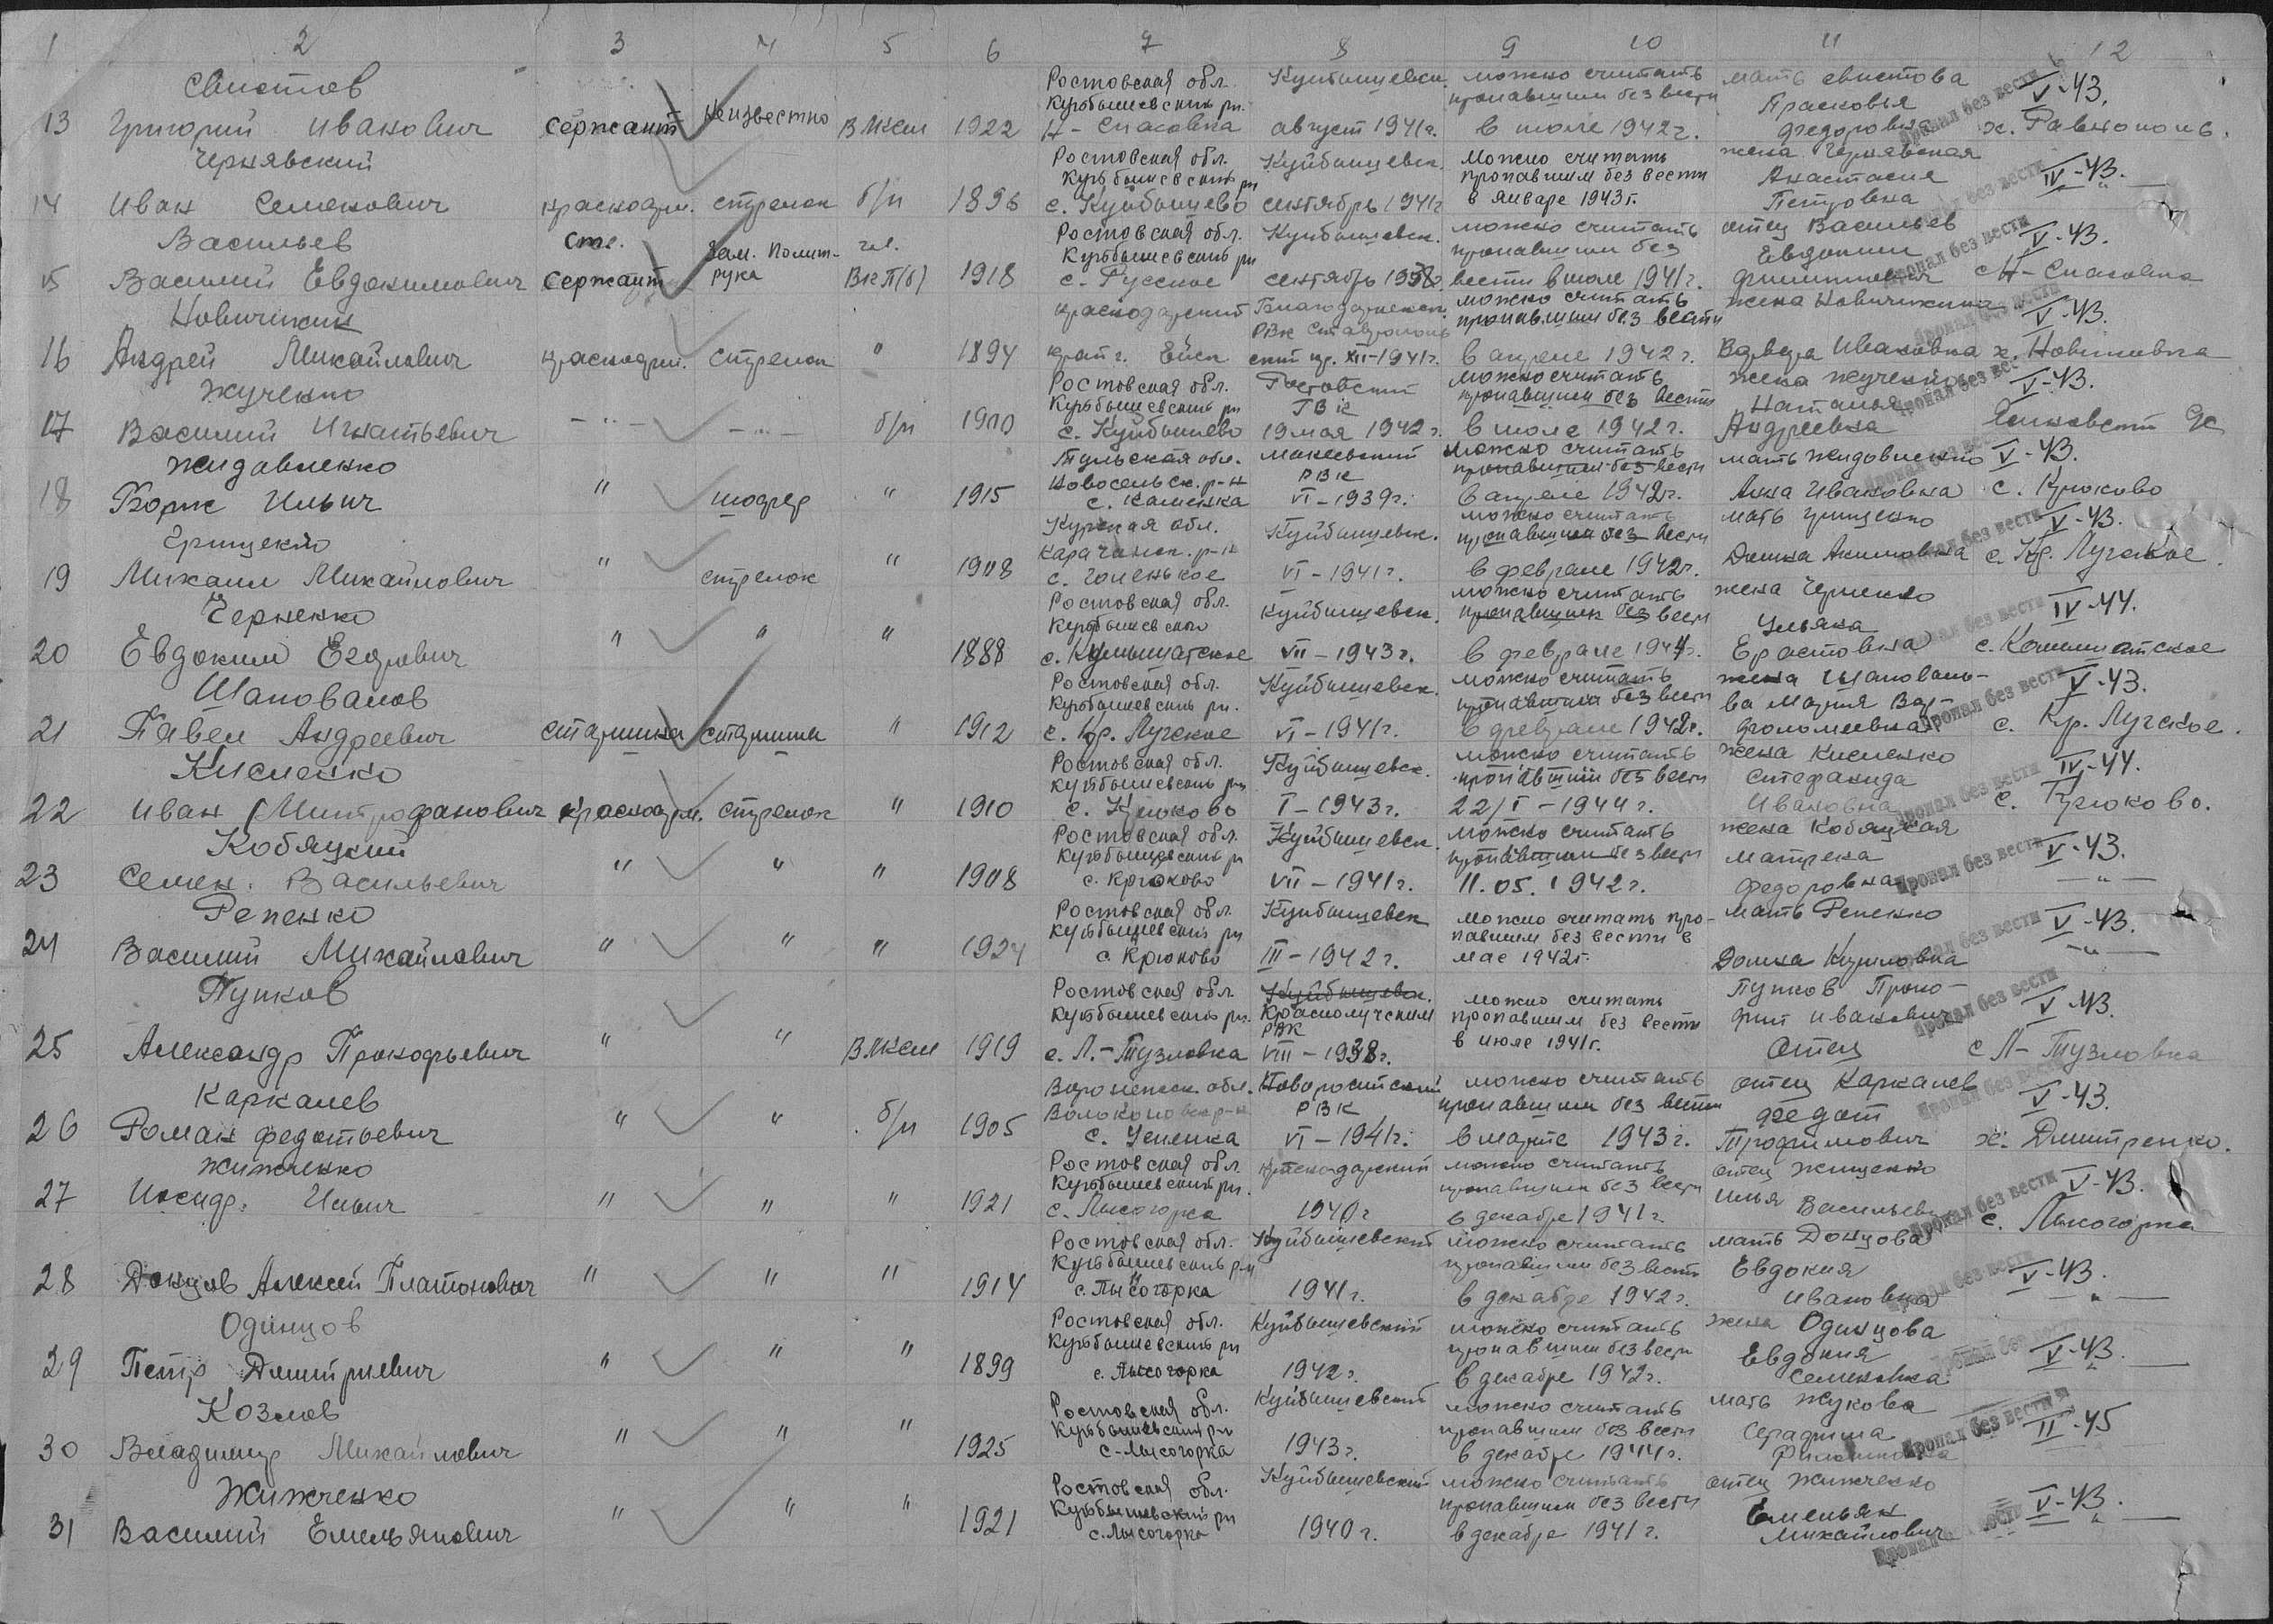 1 2 3 4 5 6 7 8 9 10 11 12
Свистов Ростовская обл. Куйбышевск. можно считать мать Свистова V-43.
13 Григорий Иванович сержант неизвестно ВЛКСМ 1922 Куйбышевский рн. Н-Спасовка август 1941г. пропавшим без вести в июле 1942г. Прасковья Федоровна х. Равнополь.
Чернявский Ростовская обл. Куйбышевск. можно считать жена Чернявская IV-43.
14 Иван Семенович красноарм. стрелок б/п 1896 Куйбышевский рн с. Куйбышево сентябрь 1941г пропавшим без вести в январе 1943г. Анастасия Петровна —"—
Васильев Ст. Зам. Полит- чл. Ростовская обл. Куйбышевск. можно считать отец Васильев V-43.
15 Василий Евдокимович Сержант рука ВКП(б) 1918 Куйбышевский рн с. Русское сентябрь 1938 пропавшим без вести в июле 1941г. Евдоким Филиппович с Н-Спасовка
Новичихин Краснодарский Благодарненск. можно считать жена Новичихина V-43.
16 Андрей Михайлович красноарм. стрелок " 1894 край г. Ейск РВК Ставрополь ский кр. XII-1941г. пропавшим без вести в апреле 1942г. Варвара Ивановна х. Новиновка
Жученко Ростовская обл. Ростовский можно считать жена Жученко V-43.
17 Василий Игнатьевич —"— —"— б/п 1900 Куйбышевский рн с. Куйбышево ГВК 19 мая 1942г. пропавшим без вести в июле 1942г. Наталья Андреевна
Жидовленко Тульская обл. Макеевский можно считать мать Жидовленко V-43.
18 Борис Ильич " шофер " 1915 Новосельск. р-н с. Каменка РВК VI-1939г. пропавшим без вести в апреле 1942г. Анна Ивановна с. Крюково
Грищенко Курская обл. Куйбышевск. можно считать мать Грищенко V-43.
19 Михаил Михайлович " стрелок " 1908 р-н с. Голенькое VI-1941г. пропавшим без вести в феврале 1942г. Домна Акимовна с. Кр. Лучское.
Черненко Ростовская обл. Куйбышевск. можно считать жена Черненко IV-44.
20 Евдоким Егорович " " " 1888 Куйбышевский с. Камышатское VII-1943г. пропавшим без вести в феврале 1944г. Ульяна Ерастовна с. Камышатское
Шаповалов Ростовская обл. Куйбышевск. можно считать жена Шаповало- V-43.
21 Павел Андреевич старшина старшина " 1912 Куйбышевский рн. с. Кр. Лучское VI-1941г. пропавшим без вести в феврале 1942г. ва Мария Вар- фоломеевна с. Кр. Лучское.
Кисленко Ростовская обл. Куйбышевск. можно считать жена Кисленко IV-44.
22 Иван Митрофанович Красноарм. стрелок " 1910 Куйбышевский рн с. Крюково I-1943г. пропавшим без вести 22/I-1944г. Степанида Ивановна с. Крюково.
Кобяцкий Ростовская обл. Куйбышевск. можно считать жена Кобяцкая V-43.
23 Семен. Васильевич " " " 1908 Куйбышевский рн с. Крюково VII-1941г. пропавшим без вести 11.05.1942г. Матрена Федоровна —"—
Репенко Ростовская обл. Куйбышевск можно считать про- мать Репенко V-43.
24 Василий Михайлович " " " 1924 Куйбышевский рн с. Крюково III-1942г. павшим без вести в мае 1942г. Домна Кирилловна —"—
Пупков Ростовская обл. Куйбышевск. можно считать Пупков Проко- V-43.
25 Александр Прокофьевич " " ВЛКСМ 1919 Куйбышевский рн. с. Л.-Тузловка Краснолучским РВК VIII-1938г. пропавшим без вести в июле 1941г. фий Иванович отец с Л-Тузловка
Каркачев Воронежск. обл. Новороссийский можно считать отец Каркачев V-43.
26 Роман Федотьевич " " б/п 1905 Волоконовск р-н с. Успенка РВК VI-1941г. пропавшим без вести в марте 1943г. Федот Трофимович х. Дмитренко.
Жижченко Ростовская обл. Краснодарский можно считать отец Жищенко V-43.
27 Исидр. Ильич " " " 1921 Куйбышевский рн. с. Лысогорка 1940г пропавшим без вести в декабре 1941г. Илья Васильев с. Лысогорка
Ростовская обл. Куйбышевский можно считать мать Донцова V-43.
28 Донцов Алексей Платонович " " " 1914 Куйбышевский рн с. Лысогорка 1941г. пропавшим без вести в декабре 1942г. Евдокия Ивановна —"—
Одинцов Ростовская обл. Куйбышевский можно считать жена Одинцова V-43.
29 Петр Дмитриевич " " " 1899 Куйбышевский рн с. Лысогорка 1942г. пропавшим без вести в декабре 1942г. Евдокия Семеновна —"—
Козлов Ростовская обл. Куйбышевский можно считать мать Жукова II-45
30 Владимир Михайлович " " " 1925 Куйбышевский рн с. Лысогорка 1943г. пропавшим без вести в декабре 1944г. Серафима
Жижченко Ростовская обл. Куйбышевский можно считать отец Жижченко V-43.
31 Василий Емельянович " " " 1921 Куйбышевский рн с. Лысогорка 1940г. пропавшим без вести в декабре 1941г. Емельян Михайлович —"—
Пропал без вести